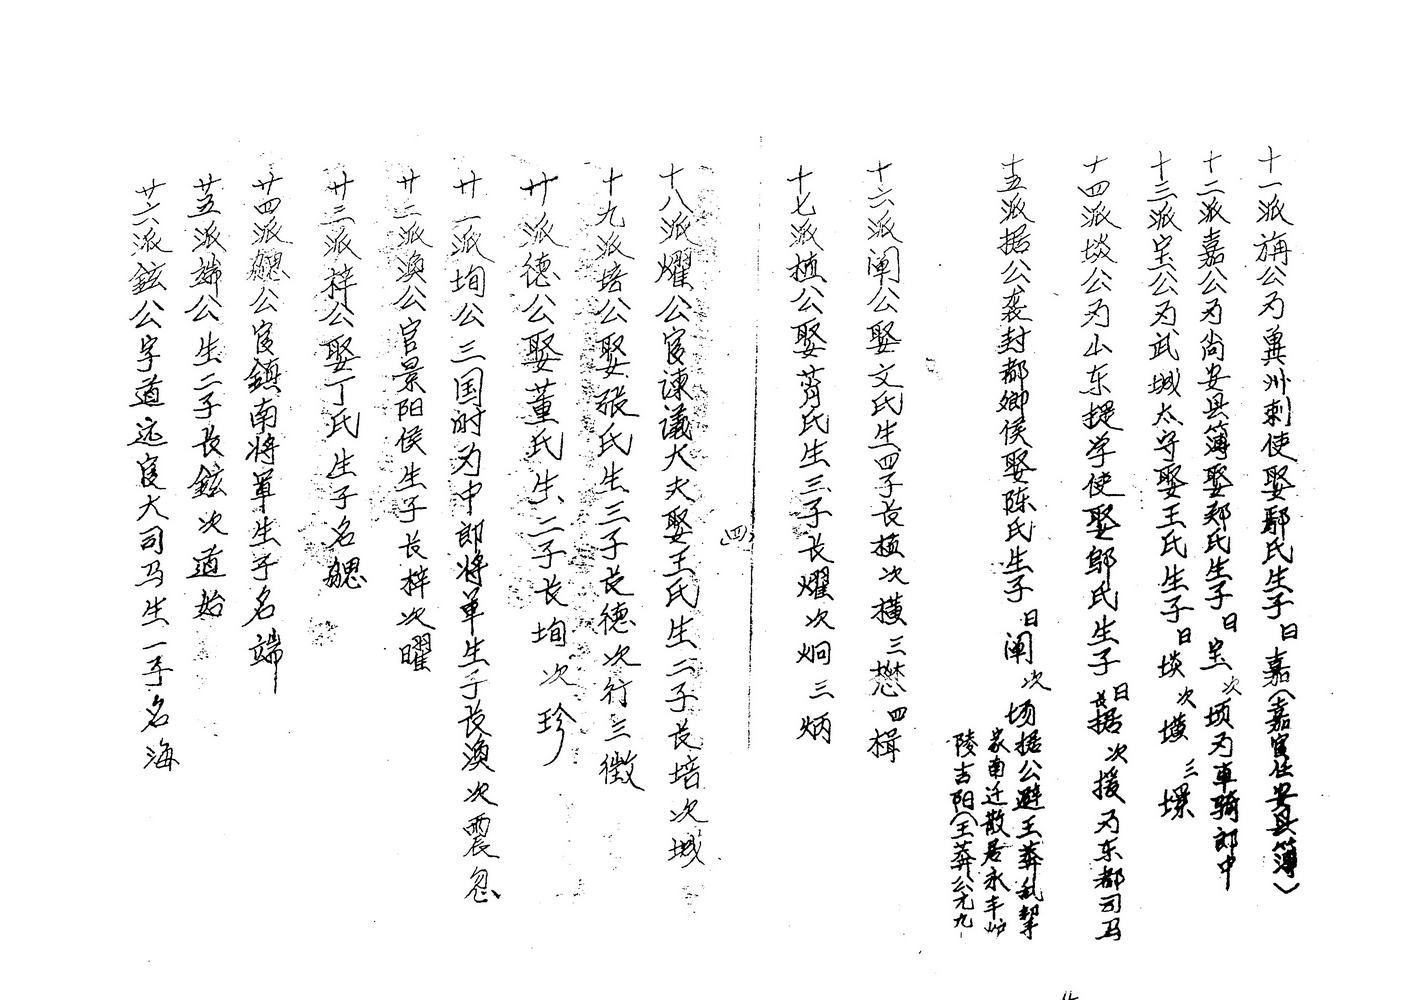 十一派旃公为冀州刺使娶鄢氏生子曰嘉(嘉官任安县簿)
十二派嘉公为尚安县簿娶郑氏生子曰宝次顼为车骑郎中
十三派宝公为武城太守娶王氏生子曰埮次墣三壜
十四派埮公为山东提学使娶邬氏生子曰长据次援为东都司马
十五派据公袭封都乡侯娶陈氏生子曰阐次场据公避王莽乱挈
家南迁散居永丰炉
陵吉阳(王莽公元九
十六派阐公娶文氏生四子长植次横三懋四楫
十七派植公娶萧氏生三子长耀次炯三炳
(四)
十八派耀公官谏议大夫娶王氏生二子长培次城
十九派培公娶张氏生三子长德次行三徵
廿派德公娶董氏生二子长珣次珍
廿一派珣公三国时为中郎将单生子长渙次震忽
廿二派渙公官景阳侯生子长梓次曜
廿三派梓公娶丁氏生子名勰
廿四派勰公官鎮南将军生子名端
廿五派端公生二子长鉉次道始
廿六派鉉公字道远官大司马生一子名海